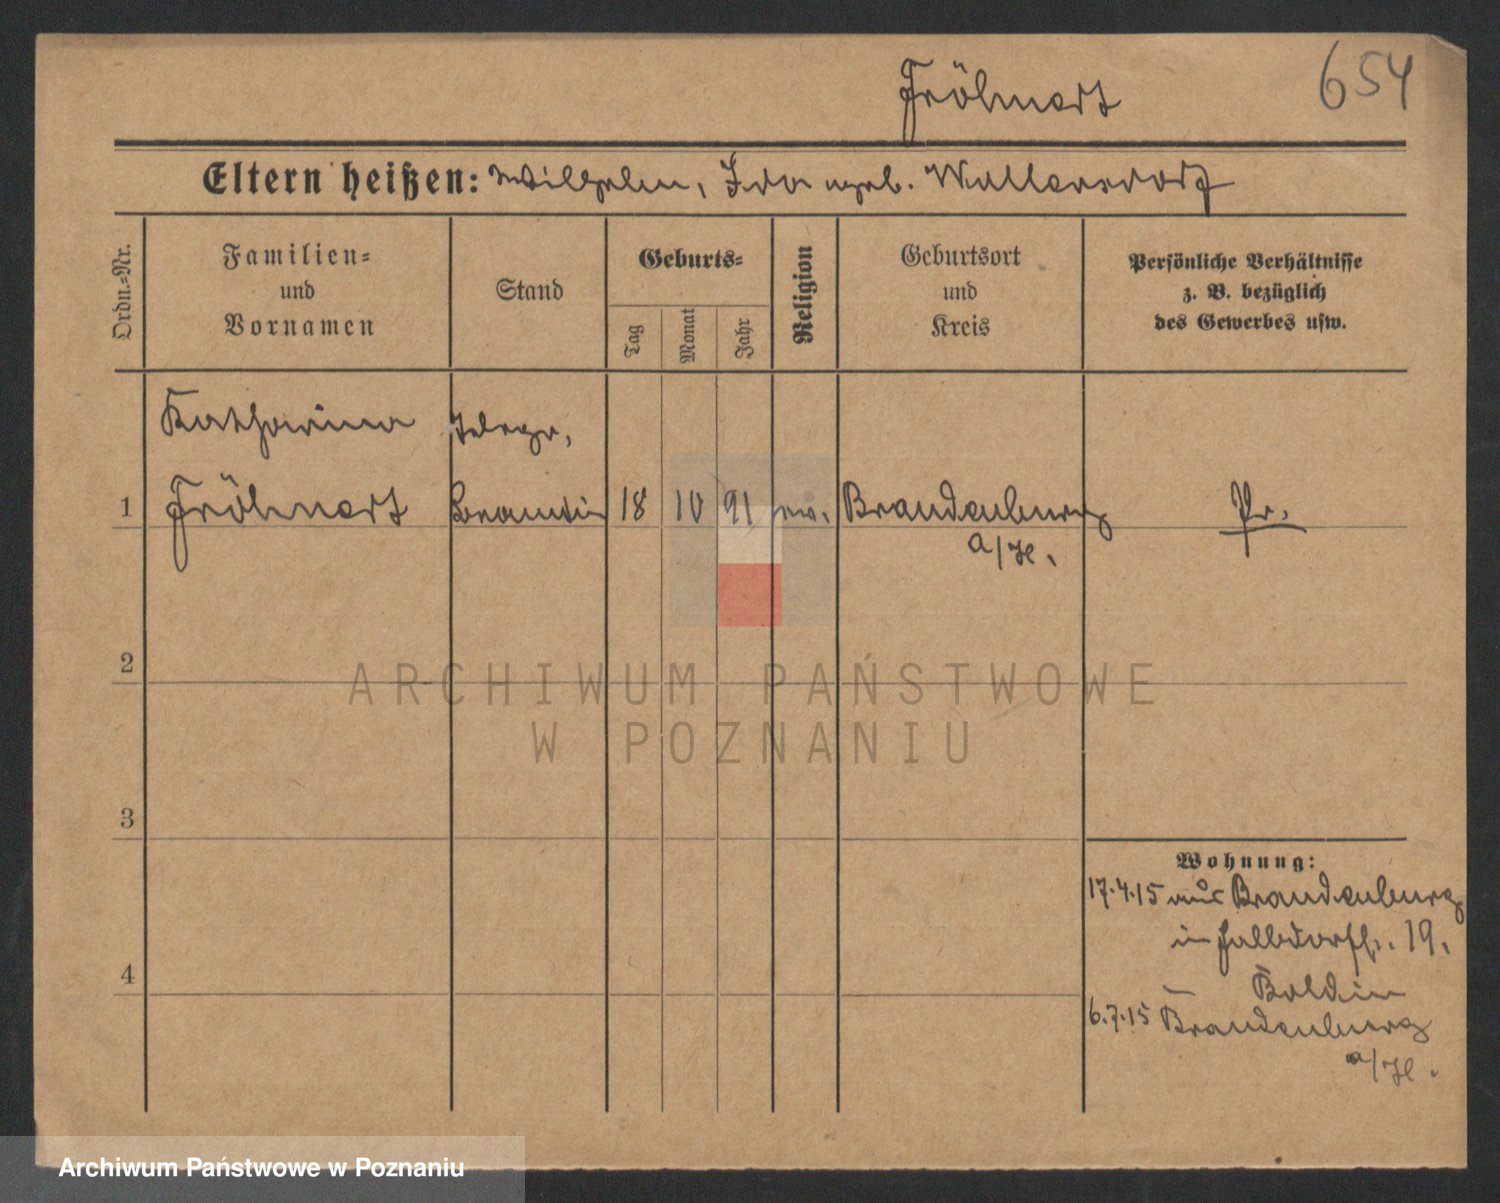 Fröhnert
654
Eltern heißen: Wilhelm, Ida geb. Wallersdorf
Ordn.-Nr.
Familien-
und
Vornamen
Stand
Geburts-
Tag
Monat
Jahr
Religion
Geburtsort
und
Kreis
Persönliche Verhältnisse
z. B. bezüglich
des Gewerbes usw.
Katharina Telegr.
1 Fröhnert Beamtin 18 10 91 ev. Brandenburg Pr.
a/H.
2
ARCHIWUM PAŃSTWOWE
W POZNANIU
3
Wohnung:
17.4.15 aus Brandenburg
in 19.
4
6.7.15 Brandenburg
a/H.
Archiwum Państwowe w Poznaniu